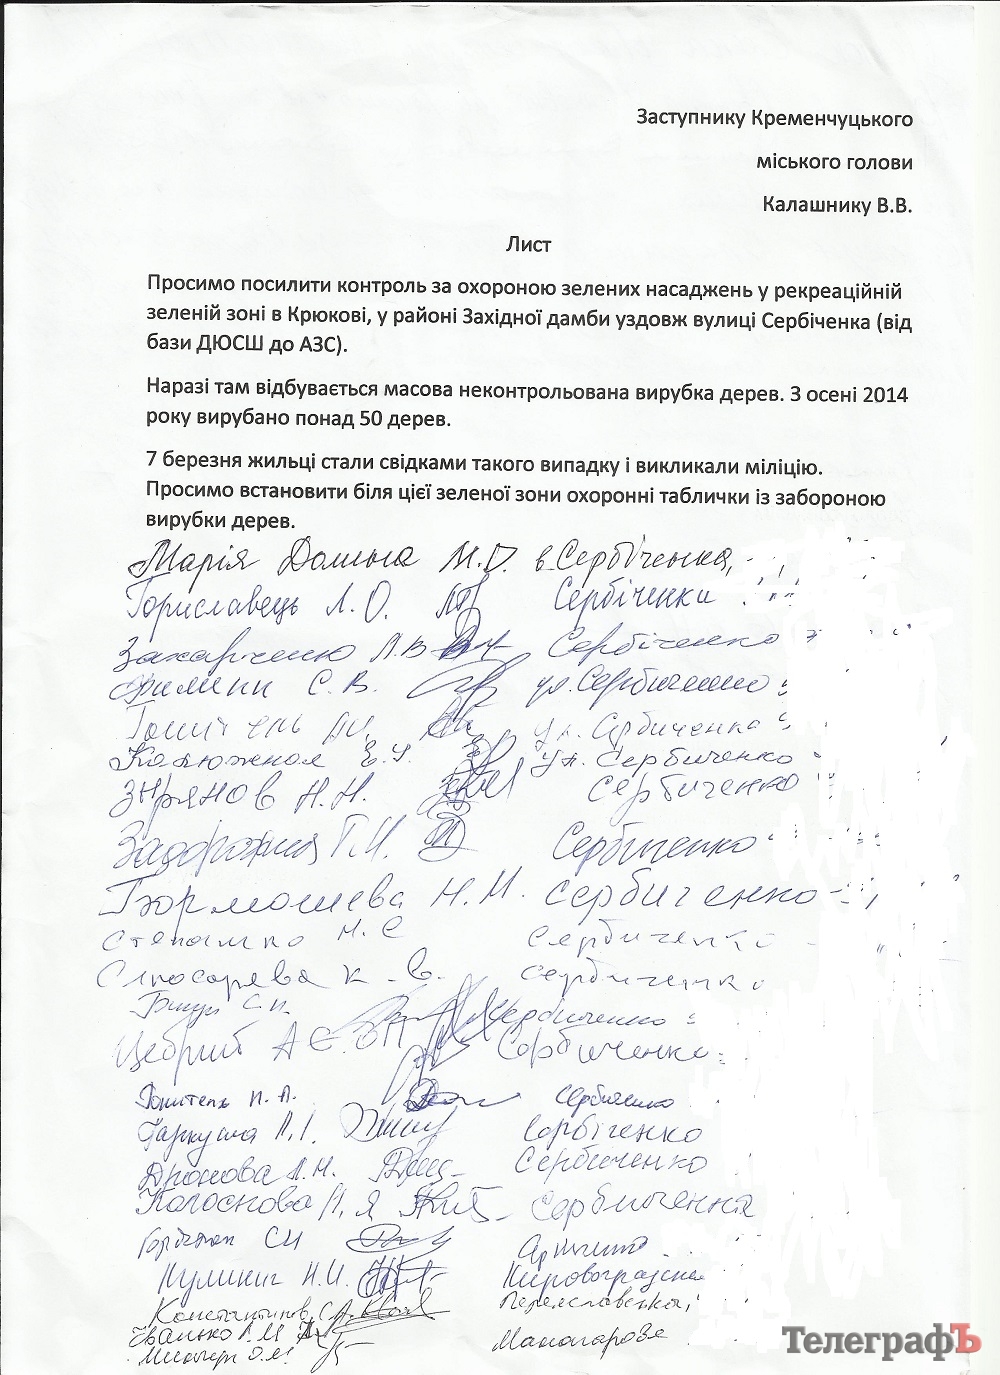 Заступнику Кременчуцького
міського голови
Калашнику В.В.
Лист
Просимо посилити контроль за охороною зелених насаджень у рекреаційній
зеленій зоні в Крюкові, у районі Західної дамби уздовж вулиці Сербіченка (від
бази ДЮСШ до АЗС).
Наразі там відбувається масова неконтрольована вирубка дерев. З осені 2014
року вирубано понад 50 дерев.
7 березня жильці стали свідками такого випадку і викликали міліцію.
Просимо встановити біля цієї зеленої зони охоронні таблички із забороною
вирубки дерев.
Марія Долина М.Д. в. Сербіченка,
Гориславець Л.О. Сербіченки
Захарченко Л.В. Сербіченко
С.В. ул. Сербиченко
ул. Сербиченка
Калюжная Е. ул. Сербиченко
Зырянов Н.Н. Сербиченко
Задорожня Г.И. Сербиченко
Бормошева Н.М. Сербиченко
Степаненко Н.С Сербиченко
Слюсарева К.В. Сербиченко
С.Н. Сербиченко
А Сербиченко
Гонитель Н.А. Сербиченко
Гаркуша Л.І. Сербіченко
Дронова Л.Н. Сербиченко
Колоснова Л.Я Сербиченка
СИ
Кулинич Н.И. Кировоградская
Константинов С.А. Переяславская
Иванько Л.М. Манагарова
О.М.
ТелеграфЪ